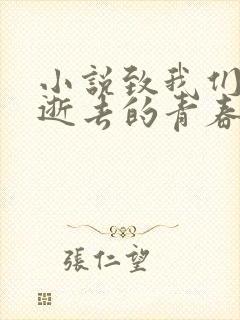 小說致我們
逝去的青春
張仁望